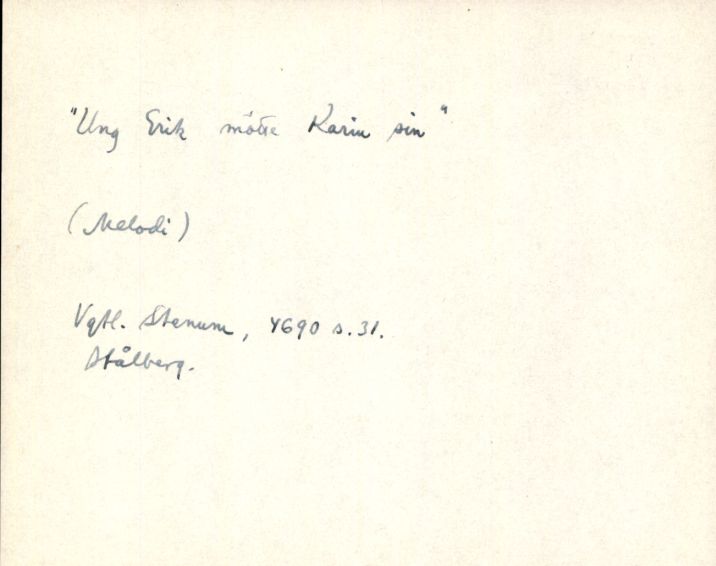 "Ung Erik mötte Karin sin"
(Melodi)
Vgtl. Stenum, 4690 s.31.
Stålberg.